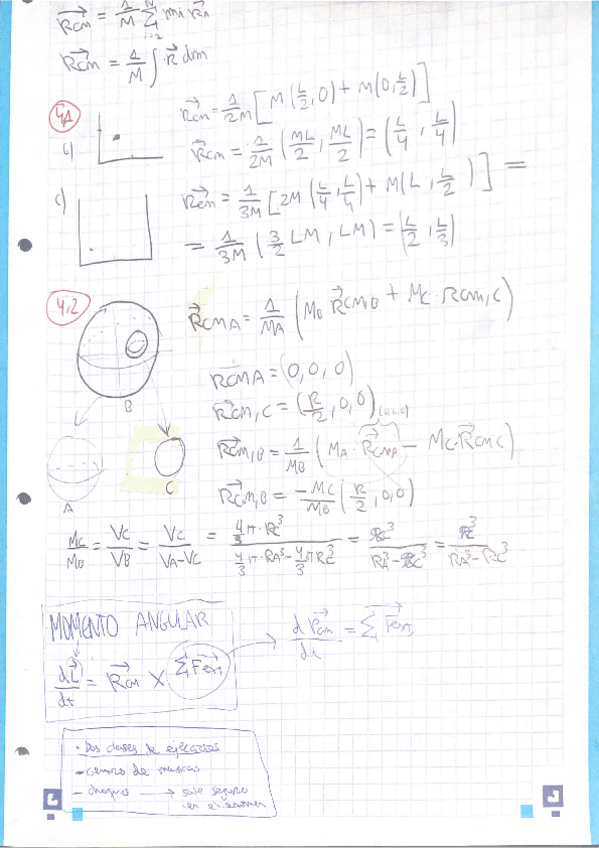 R⃗cm = 1/M Σ mi r⃗i
R⃗cm = 1/M ∫ r⃗ dm
4.1
R⃗cm = 1/2M [M(L/2, 0) + M(0, L/2)]
b) R⃗cm = 1/2M (ML/2, ML/2) = (L/4, L/4)
c) R⃗cm = 1/3M [2M(L/4, L/4) + M(L, L/2)] =
= 1/3M (3/2 LM, LM) = (L/2, L/3)
4.2
R⃗CMA = 1/MA (MB R⃗CM,B + MC · R⃗CM,C)
B
R⃗CMA = (0, 0, 0)
R⃗CM,C = (R/2, 0, 0)
(0,0,0)
R⃗CM,B = 1/MB (MA · R⃗CMA − MC · R⃗CMC)
A C
R⃗CM,B = −MC/MB (R/2, 0, 0)
MC/MB = VC/VB = VC/VA−VC = 4/3 π · RC³ / 4/3 π · RA³ − 4/3 π RC³ = RC³/RA³−RC³ = RC³/RA³−RC³
MOMENTO ANGULAR
dL⃗/dt = R⃗cm × Σ F⃗ext
dP⃗cm/dt = Σ F⃗ext
- Dos clases de ejercicios
- centro de masas
- choques → sale seguro
en el examen